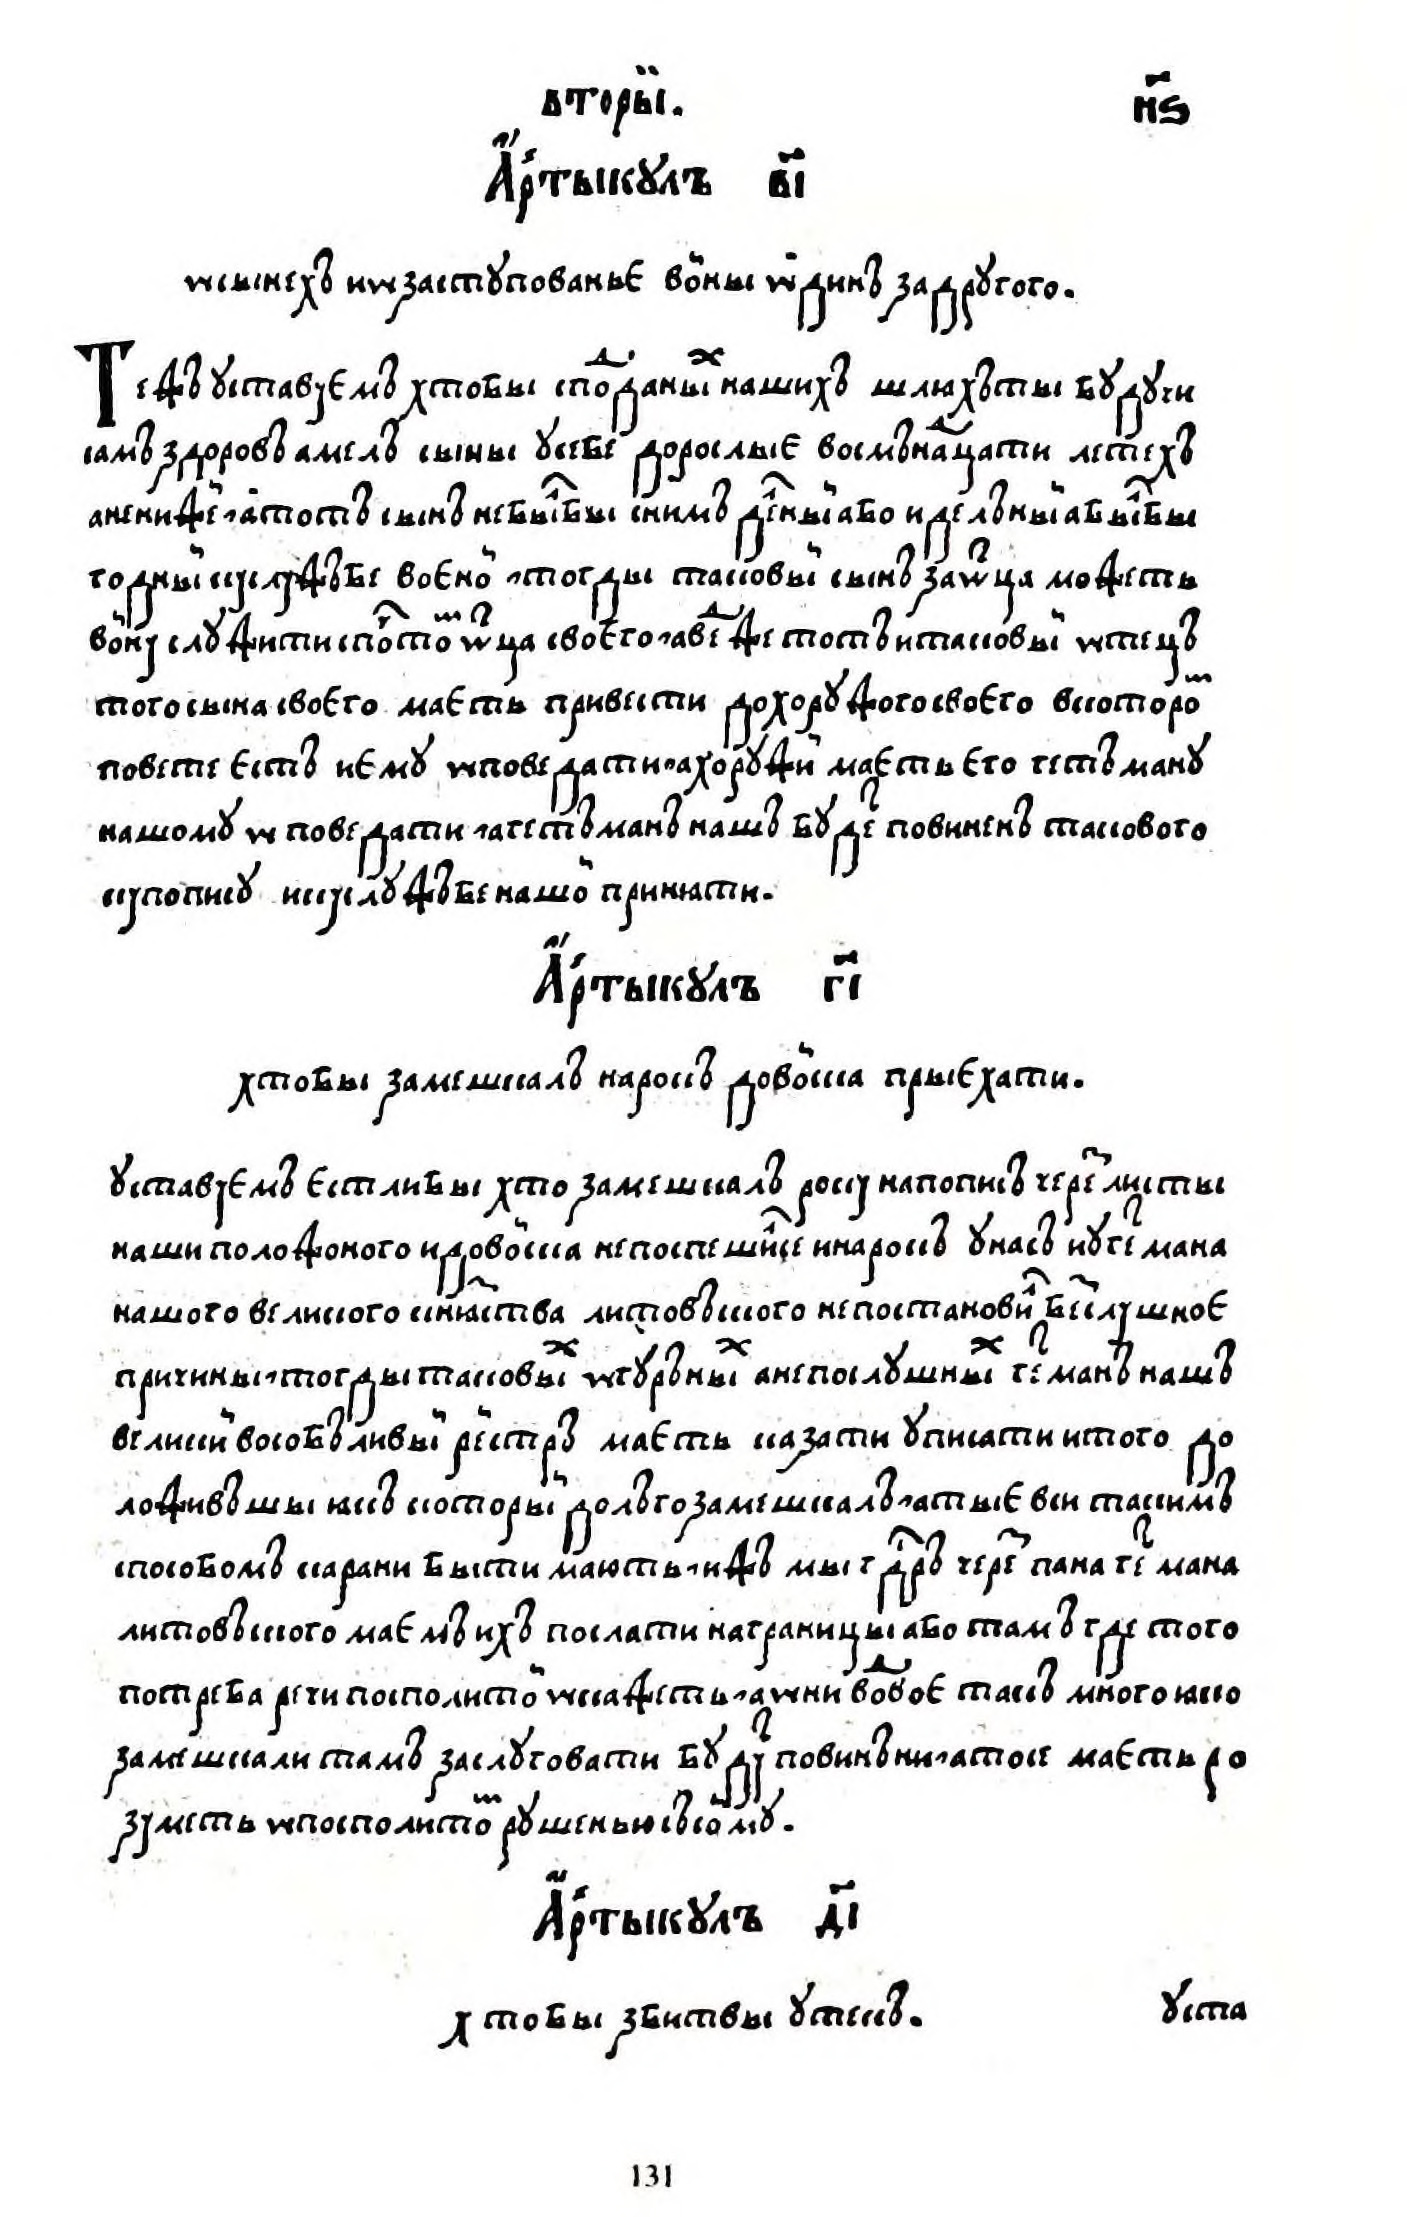 вторыи.
н҃ѕ
Артыкулъ в҃і
ѡ сынехъ и ѡ заступованье воины ѡдинъ за другого.
Тежъ уставуемъ хто бы с подданыхъ нашихъ шляхъты будучи
самъ здоровъ а мелъ сыны у себе дорослые восмънадцати летехъ
а не ниже, а тотъ сынъ не былъ бы с нимъ деленыи або и дельныи а былъ бы
годныи ку служъбе военнои, тогды таковыи сынъ за ѡтца можеть
воину служити с почтомъ ѡтца своего, а ведже тотъ и таковыи ѡтецъ
того сына своего маеть привести до хоружого своего в котором
повете естъ и ему ѡповедати, а хоружии маеть его гетъману
нашому ѡповедати, а гетъманъ нашъ будеть повиненъ такового
ку попису и ку служъбе нашои приняти.
Артыкулъ г҃і
хто бы замешкалъ на рокъ до воиска прыехати.
Уставуемъ естли бы хто замешкалъ року на пописъ через листы
наши положоного и до воиска не поспешилсе и на рокъ у насъ и у гетмана
нашого великого князства литовъского не постановилсе без слушное
причины, тогды таковых ѡгуръных а непослушных гетманъ нашъ
великии в особъливыи реистръ маеть казати уписати и того до
ложивъшы якъ которыи долъго замешкалъ, а тые вси такимъ
способомъ карани быти мають, ижъ мы гдръ через пана гетмана
литовъского маемъ ихъ послати на границы або тамъ где того
потреба речи посполитои ѡкажеть, а ѡни вдвое такъ много яко
замешкали тамъ заслуговати будуть повинъни, а тое маеть ро
зуметь ѡ посполитом рушенью всякому.
Артыкулъ д҃і
хто бы з битвы утекъ.
Уста
131